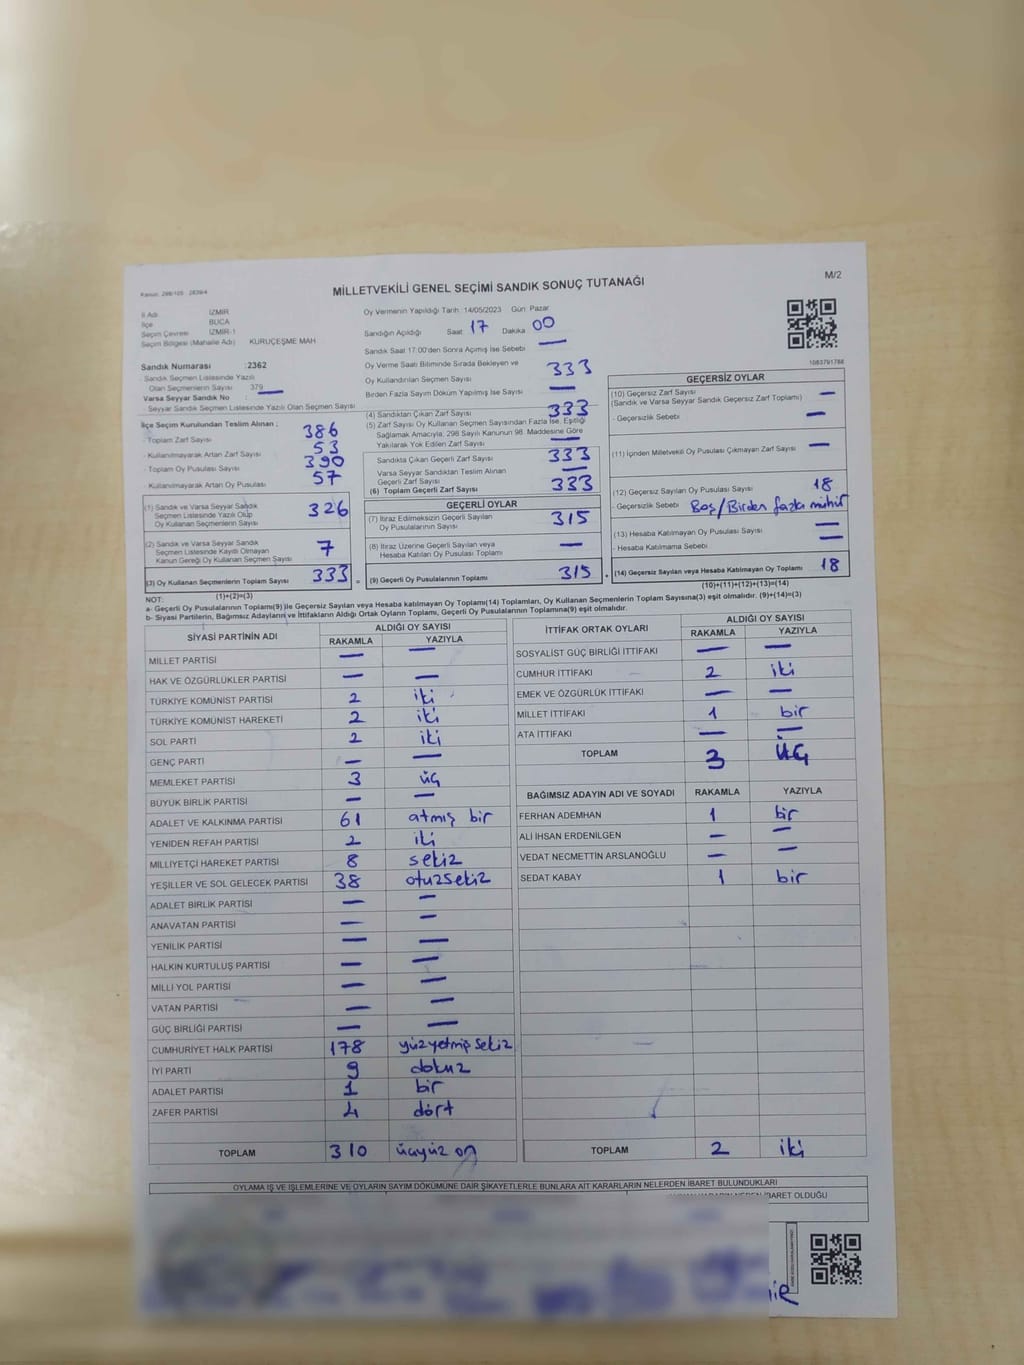 Kanun: 298/105 - 2839/4
MİLLETVEKİLİ GENEL SEÇİMİ SANDIK SONUÇ TUTANAĞI
M/2
İl Adı İZMİR
İlçe BUCA
Seçim Çevresi İZMİR-1
Seçim Bölgesi (Mahalle Adı) KURUÇEŞME MAH
Sandık Numarası :2362
- Sandık Seçmen Listesinde Yazılı
Olan Seçmenlerin Sayısı 379
Varsa Seyyar Sandık No —
- Seyyar Sandık Seçmen Listesinde Yazılı Olan Seçmen Sayısı
İlçe Seçim Kurulundan Teslim Alınan ;
- Toplam Zarf Sayısı 386
- Kullanılmayarak Artan Zarf Sayısı 53
- Toplam Oy Pusulası Sayısı 390
- Kullanılmayarak Artan Oy Pusulası 57
(1) Sandık ve Varsa Seyyar Sandık
Seçmen Listesinde Yazılı Olup
Oy Kullanan Seçmenlerin Sayısı 326
(2) Sandık ve Varsa Seyyar Sandık
Seçmen Listesinde Kayıtlı Olmayan
Kanun Gereği Oy Kullanan Seçmen Sayısı 7
(3) Oy Kullanan Seçmenlerin Toplam Sayısı 333 =
(1)+(2)=(3)
Oy Vermenin Yapıldığı Tarih 14/05/2023 Gün Pazar
Sandığın Açıldığı Saat 17 Dakika 00
Sandık Saat 17:00'den Sonra Açılmış İse Sebebi —
Oy Verme Saati Bitiminde Sırada Bekleyen ve
Oy Kullandırılan Seçmen Sayısı 333
Birden Fazla Sayım Döküm Yapılmış İse Sayısı —
(4) Sandıktan Çıkan Zarf Sayısı 333
(5) Zarf Sayısı Oy Kullanan Seçmen Sayısından Fazla İse, Eşitliği
Sağlamak Amacıyla, 298 Sayılı Kanunun 98. Maddesine Göre
Yakılarak Yok Edilen Zarf Sayısı —
Sandıkta Çıkan Geçerli Zarf Sayısı 333
Varsa Seyyar Sandıktan Teslim Alınan
Geçerli Zarf Sayısı —
(6) Toplam Geçerli Zarf Sayısı 333
GEÇERLİ OYLAR
(7) İtiraz Edilmeksizin Geçerli Sayılan
Oy Pusulalarının Sayısı 315
(8) İtiraz Üzerine Geçerli Sayılan veya
Hesaba Katılan Oy Pusulası Toplamı —
(9) Geçerli Oy Pusulalarının Toplamı 315 +
1083791788
GEÇERSİZ OYLAR
(10) Geçersiz Zarf Sayısı —
(Sandık ve Varsa Seyyar Sandık Geçersiz Zarf Toplamı)
- Geçersizlik Sebebi —
(11) İçinden Milletvekili Oy Pusulası Çıkmayan Zarf Sayısı —
(12) Geçersiz Sayılan Oy Pusulası Sayısı 18
- Geçersizlik Sebebi Boş/Birden fazla mühür
(13) Hesaba Katılmayan Oy Pusulası Sayısı —
- Hesaba Katılmama Sebebi —
(14) Geçersiz Sayılan veya Hesaba Katılmayan Oy Toplamı 18
(10)+(11)+(12)+(13)=(14)
NOT:
a- Geçerli Oy Pusulalarının Toplamı(9) ile Geçersiz Sayılan veya Hesaba katılmayan Oy Toplamı(14) Toplamları, Oy Kullanan Seçmenlerin Toplam Sayısına(3) eşit olmalıdır. (9)+(14)=(3)
b- Siyasi Partilerin, Bağımsız Adayların ve İttifakların Aldığı Ortak Oyların Toplamı, Geçerli Oy Pusulalarının Toplamına(9) eşit olmalıdır.
SİYASİ PARTİNİN ADI ALDIĞI OY SAYISI
RAKAMLA YAZIYLA
MİLLET PARTİSİ — —
HAK VE ÖZGÜRLÜKLER PARTİSİ — —
TÜRKİYE KOMÜNİST PARTİSİ 2 iki
TÜRKİYE KOMÜNİST HAREKETİ 2 iki
SOL PARTİ 2 iki
GENÇ PARTİ — —
MEMLEKET PARTİSİ 3 üç
BÜYÜK BİRLİK PARTİSİ — —
ADALET VE KALKINMA PARTİSİ 61 atmış bir
YENİDEN REFAH PARTİSİ 2 iki
MİLLİYETÇİ HAREKET PARTİSİ 8 sekiz
YEŞİLLER VE SOL GELECEK PARTİSİ 38 otuzsekiz
ADALET BİRLİK PARTİSİ — —
ANAVATAN PARTİSİ — —
YENİLİK PARTİSİ — —
HALKIN KURTULUŞ PARTİSİ — —
MİLLİ YOL PARTİSİ — —
VATAN PARTİSİ — —
GÜÇ BİRLİĞİ PARTİSİ — —
CUMHURİYET HALK PARTİSİ 178 yüzyetmiş sekiz
İYİ PARTİ 9 dokuz
ADALET PARTİSİ 1 bir
ZAFER PARTİSİ 4 dört
TOPLAM 310 üçyüz on
İTTİFAK ORTAK OYLARI ALDIĞI OY SAYISI
RAKAMLA YAZIYLA
SOSYALİST GÜÇ BİRLİĞİ İTTİFAKI — —
CUMHUR İTTİFAKI 2 iki
EMEK VE ÖZGÜRLÜK İTTİFAKI — —
MİLLET İTTİFAKI 1 bir
ATA İTTİFAKI — —
TOPLAM 3 ÜÇ
BAĞIMSIZ ADAYIN ADI VE SOYADI RAKAMLA YAZIYLA
FERHAN ADEMHAN 1 bir
ALİ İHSAN ERDENİLGEN — —
VEDAT NECMETTİN ARSLANOĞLU — —
SEDAT KABAY 1 bir
TOPLAM 2 iki
OYLAMA İŞ VE İŞLEMLERİNE VE OYLARIN SAYIM DÖKÜMÜNE DAİR ŞİKAYETLERLE BUNLARA AİT KARARLARIN NELERDEN İBARET BULUNDUKLARI
İBARET OLDUĞU